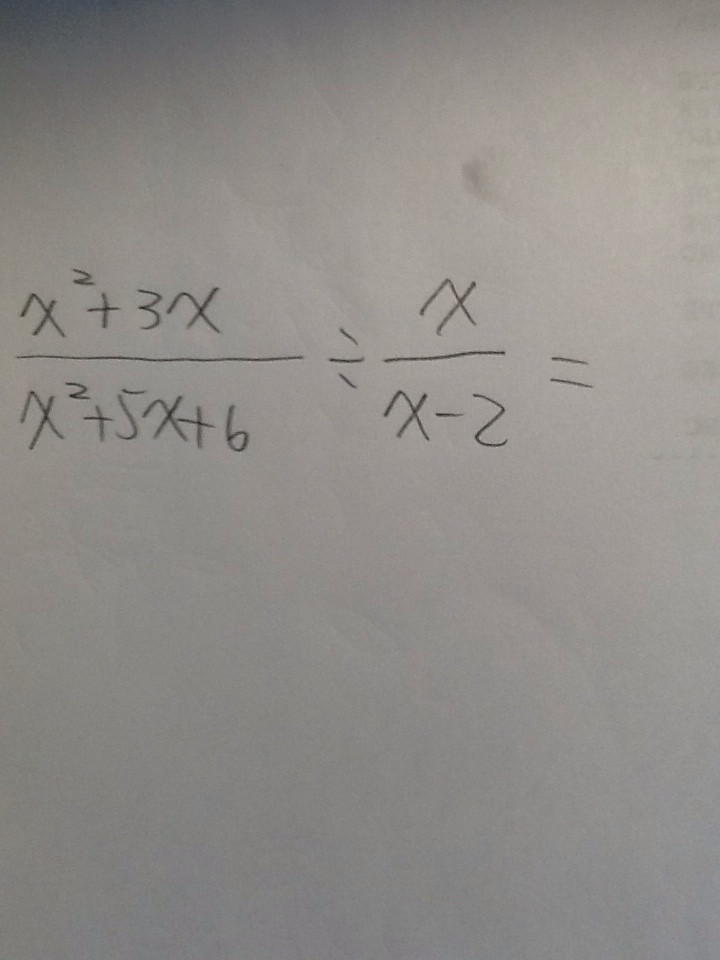 x²+3x / x²+5x+6 ÷ x / x-2 =